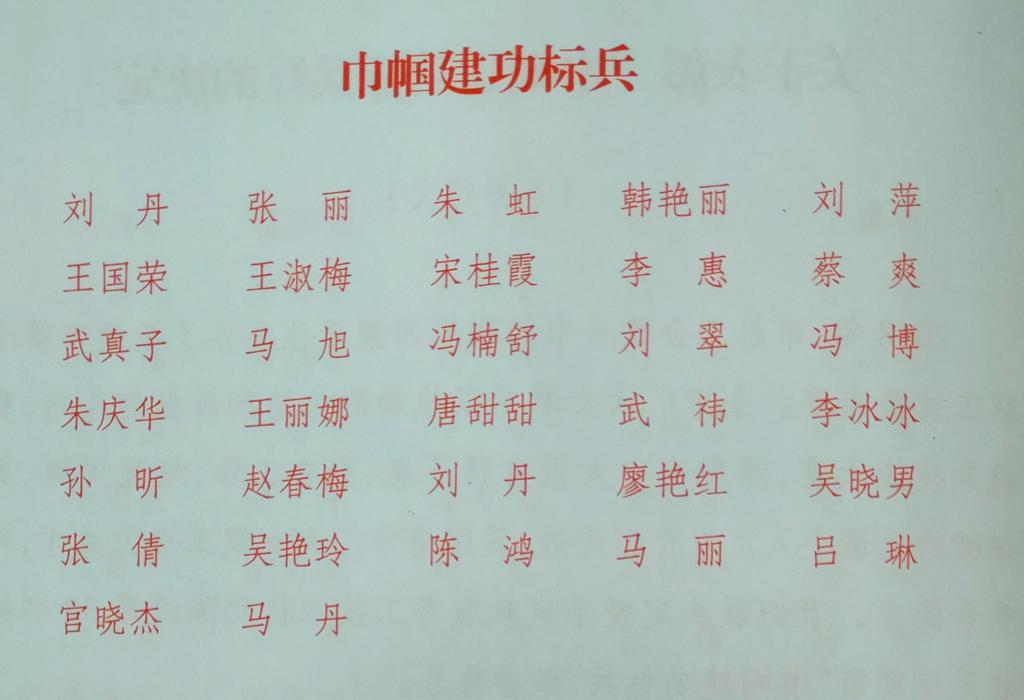 巾帼建功标兵
刘 丹 张 丽 朱 虹 韩艳丽 刘 萍
王国荣 王淑梅 宋桂霞 李 惠 蔡 爽
武真子 马 旭 冯楠舒 刘 翠 冯 博
朱庆华 王丽娜 唐甜甜 武 祎 李冰冰
孙 昕 赵春梅 刘 丹 廖艳红 吴晓男
张 倩 吴艳玲 陈 鸿 马 丽 吕 琳
宫晓杰 马 丹